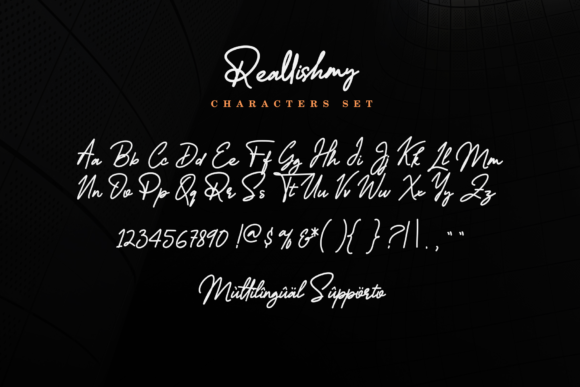 Reallishmy
CHARACTERS SET
Aa Bb Cc Dd Ee Ff Gg Hh Ii Jj Kk Ll Mm
Nn Oo Pp Qq Rr Ss Tt Uu Vv Ww Xx Yy Zz
1234567890 !@$%&*(){}?/|.,""
Mültilîngûäl Sûppörto